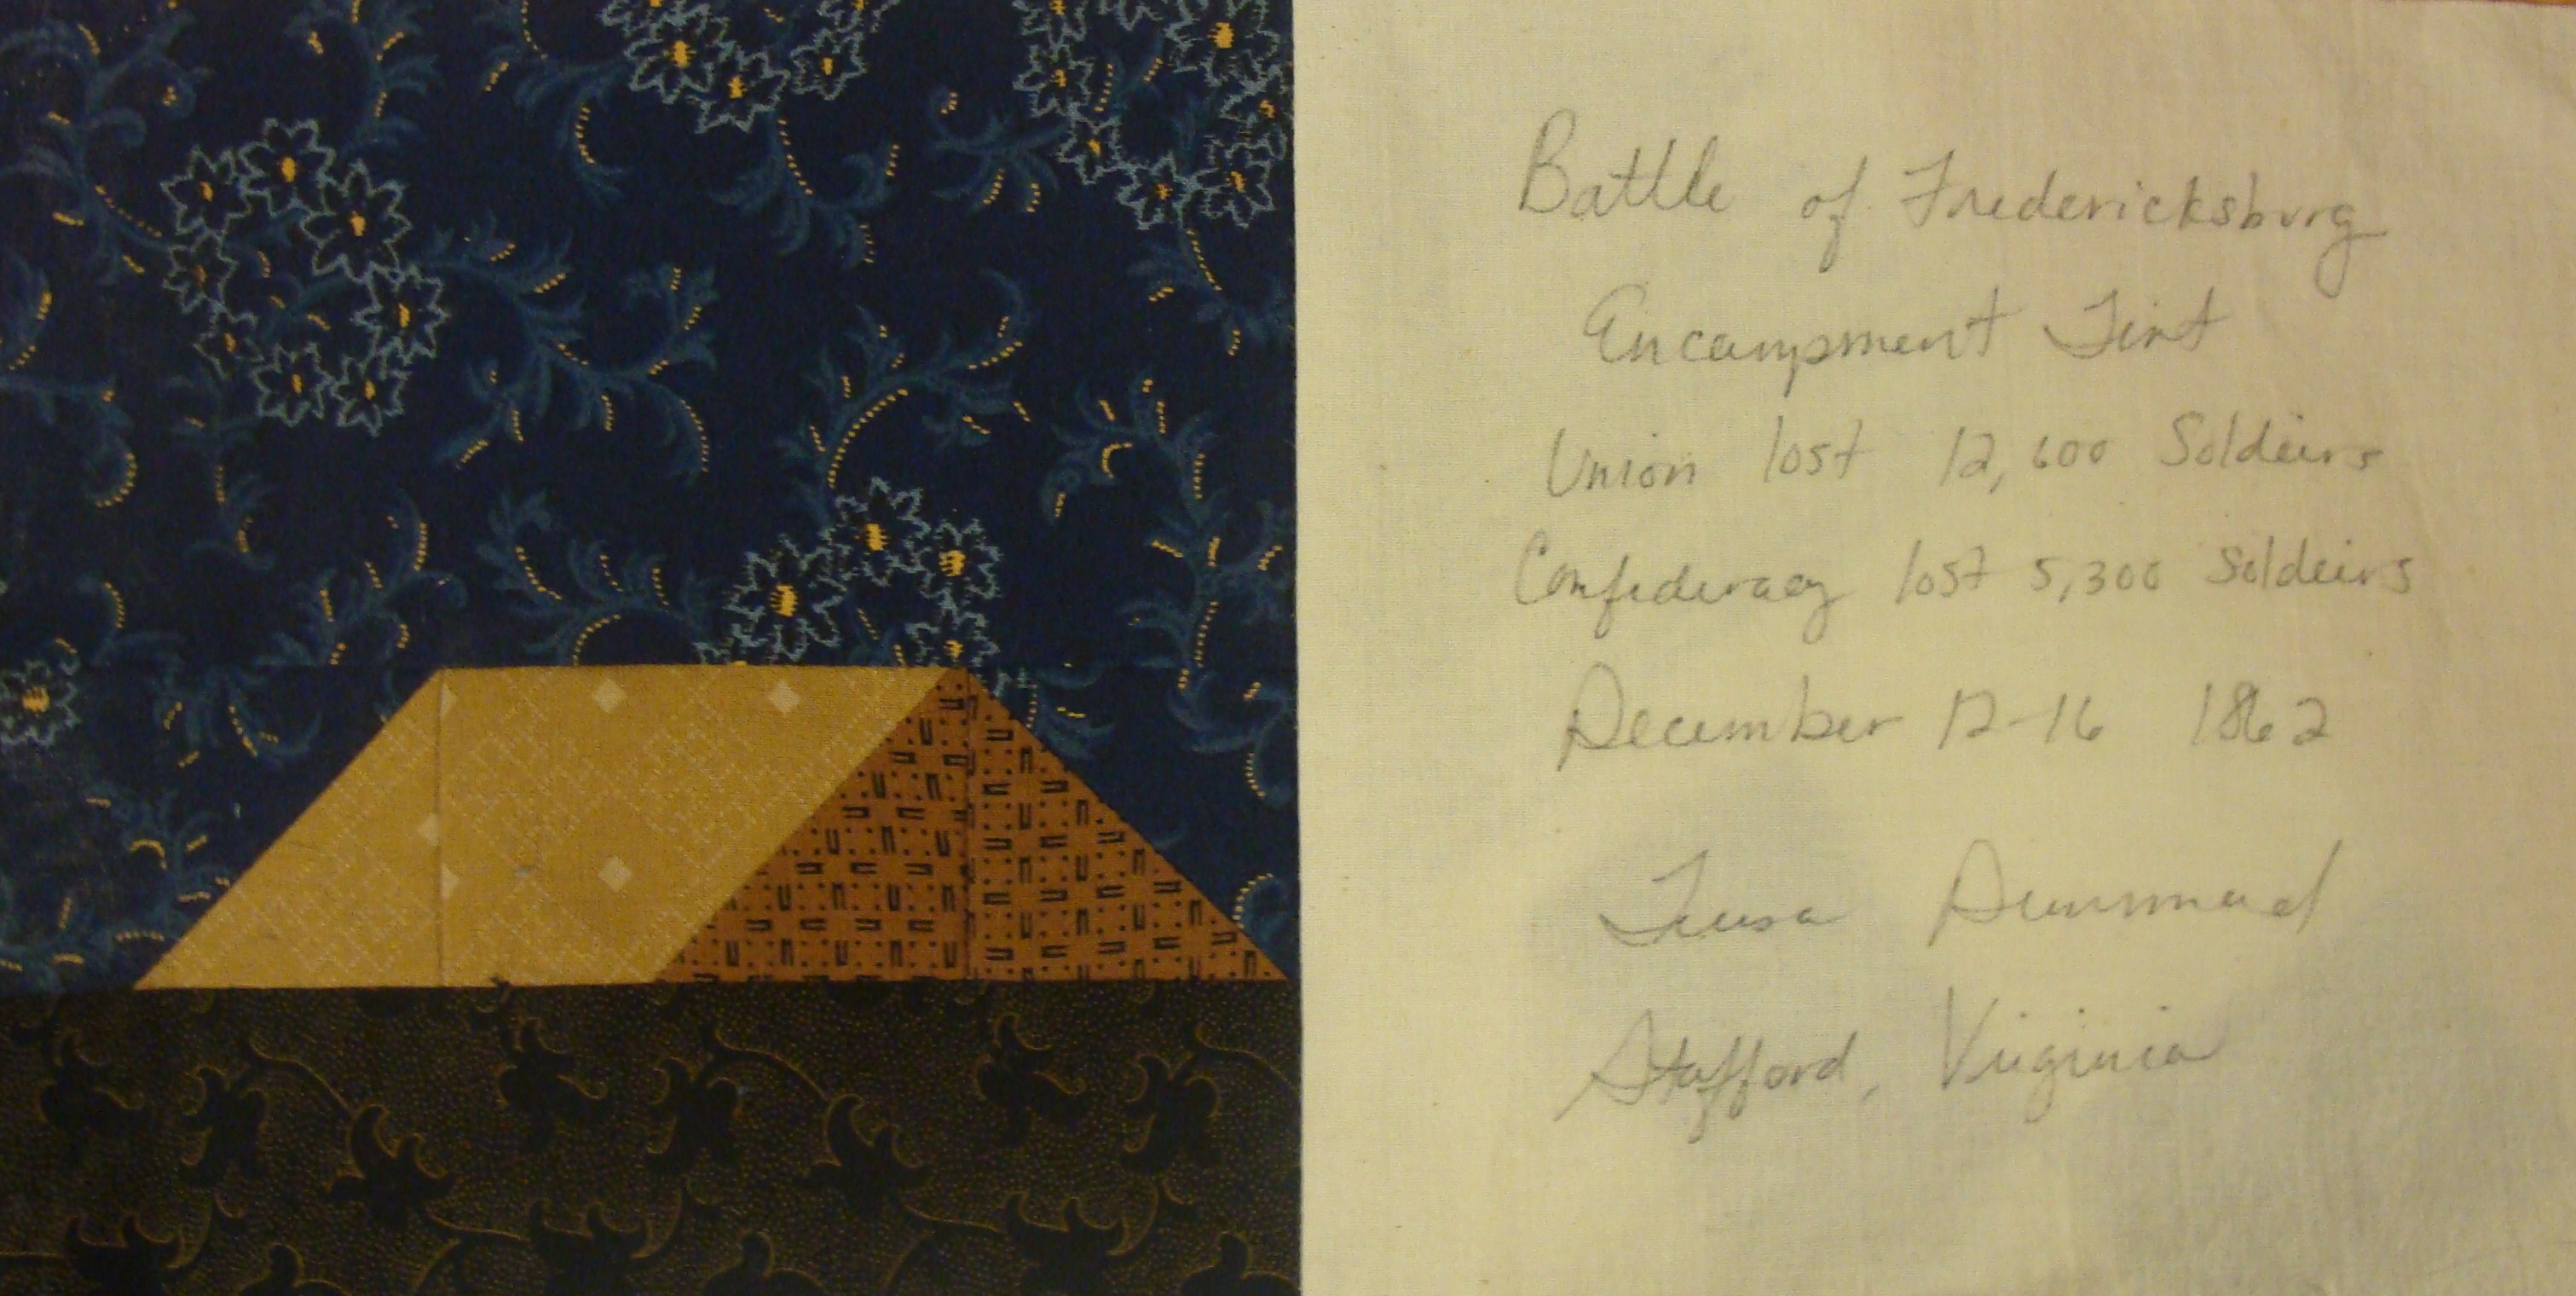 Battle of Fredericksburg
Encampment Tent
Union lost 12,600 Soldeirs
Confederacy lost 5,300 Soldeirs
December 12-16 1862
Stafford, Virginia